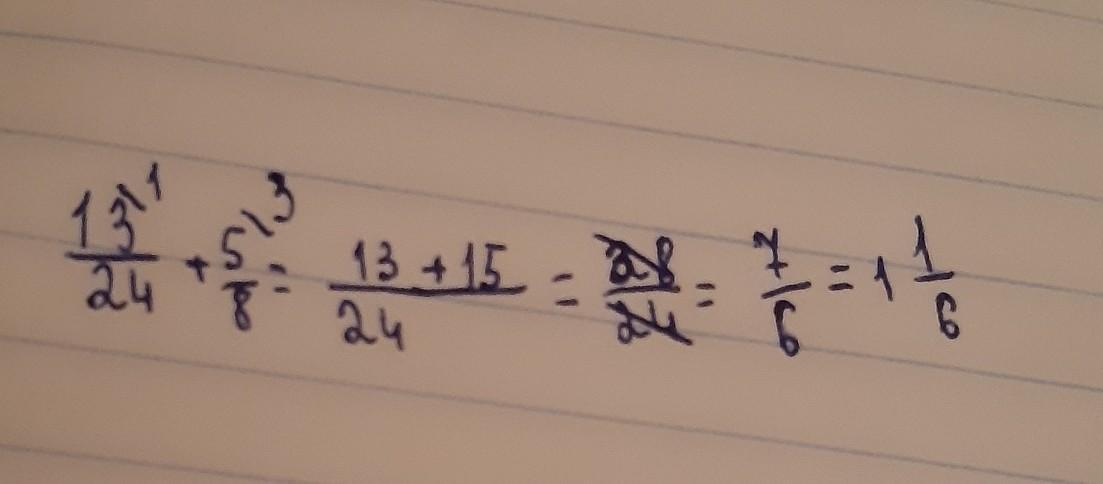 13\1/24 + 5\3/8 = 13 + 15/24 = 28/24 = 7/6 = 1 1/6